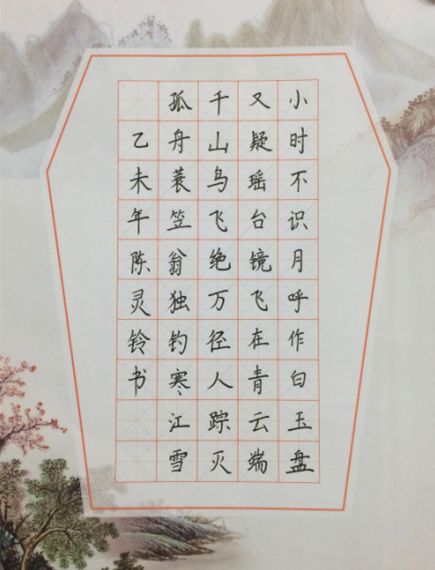 小时不识月呼作白玉盘
又疑瑶台镜飞在青云端
千山鸟飞绝万径人踪灭
孤舟蓑笠翁独钓寒江雪
乙未年陈灵铃书